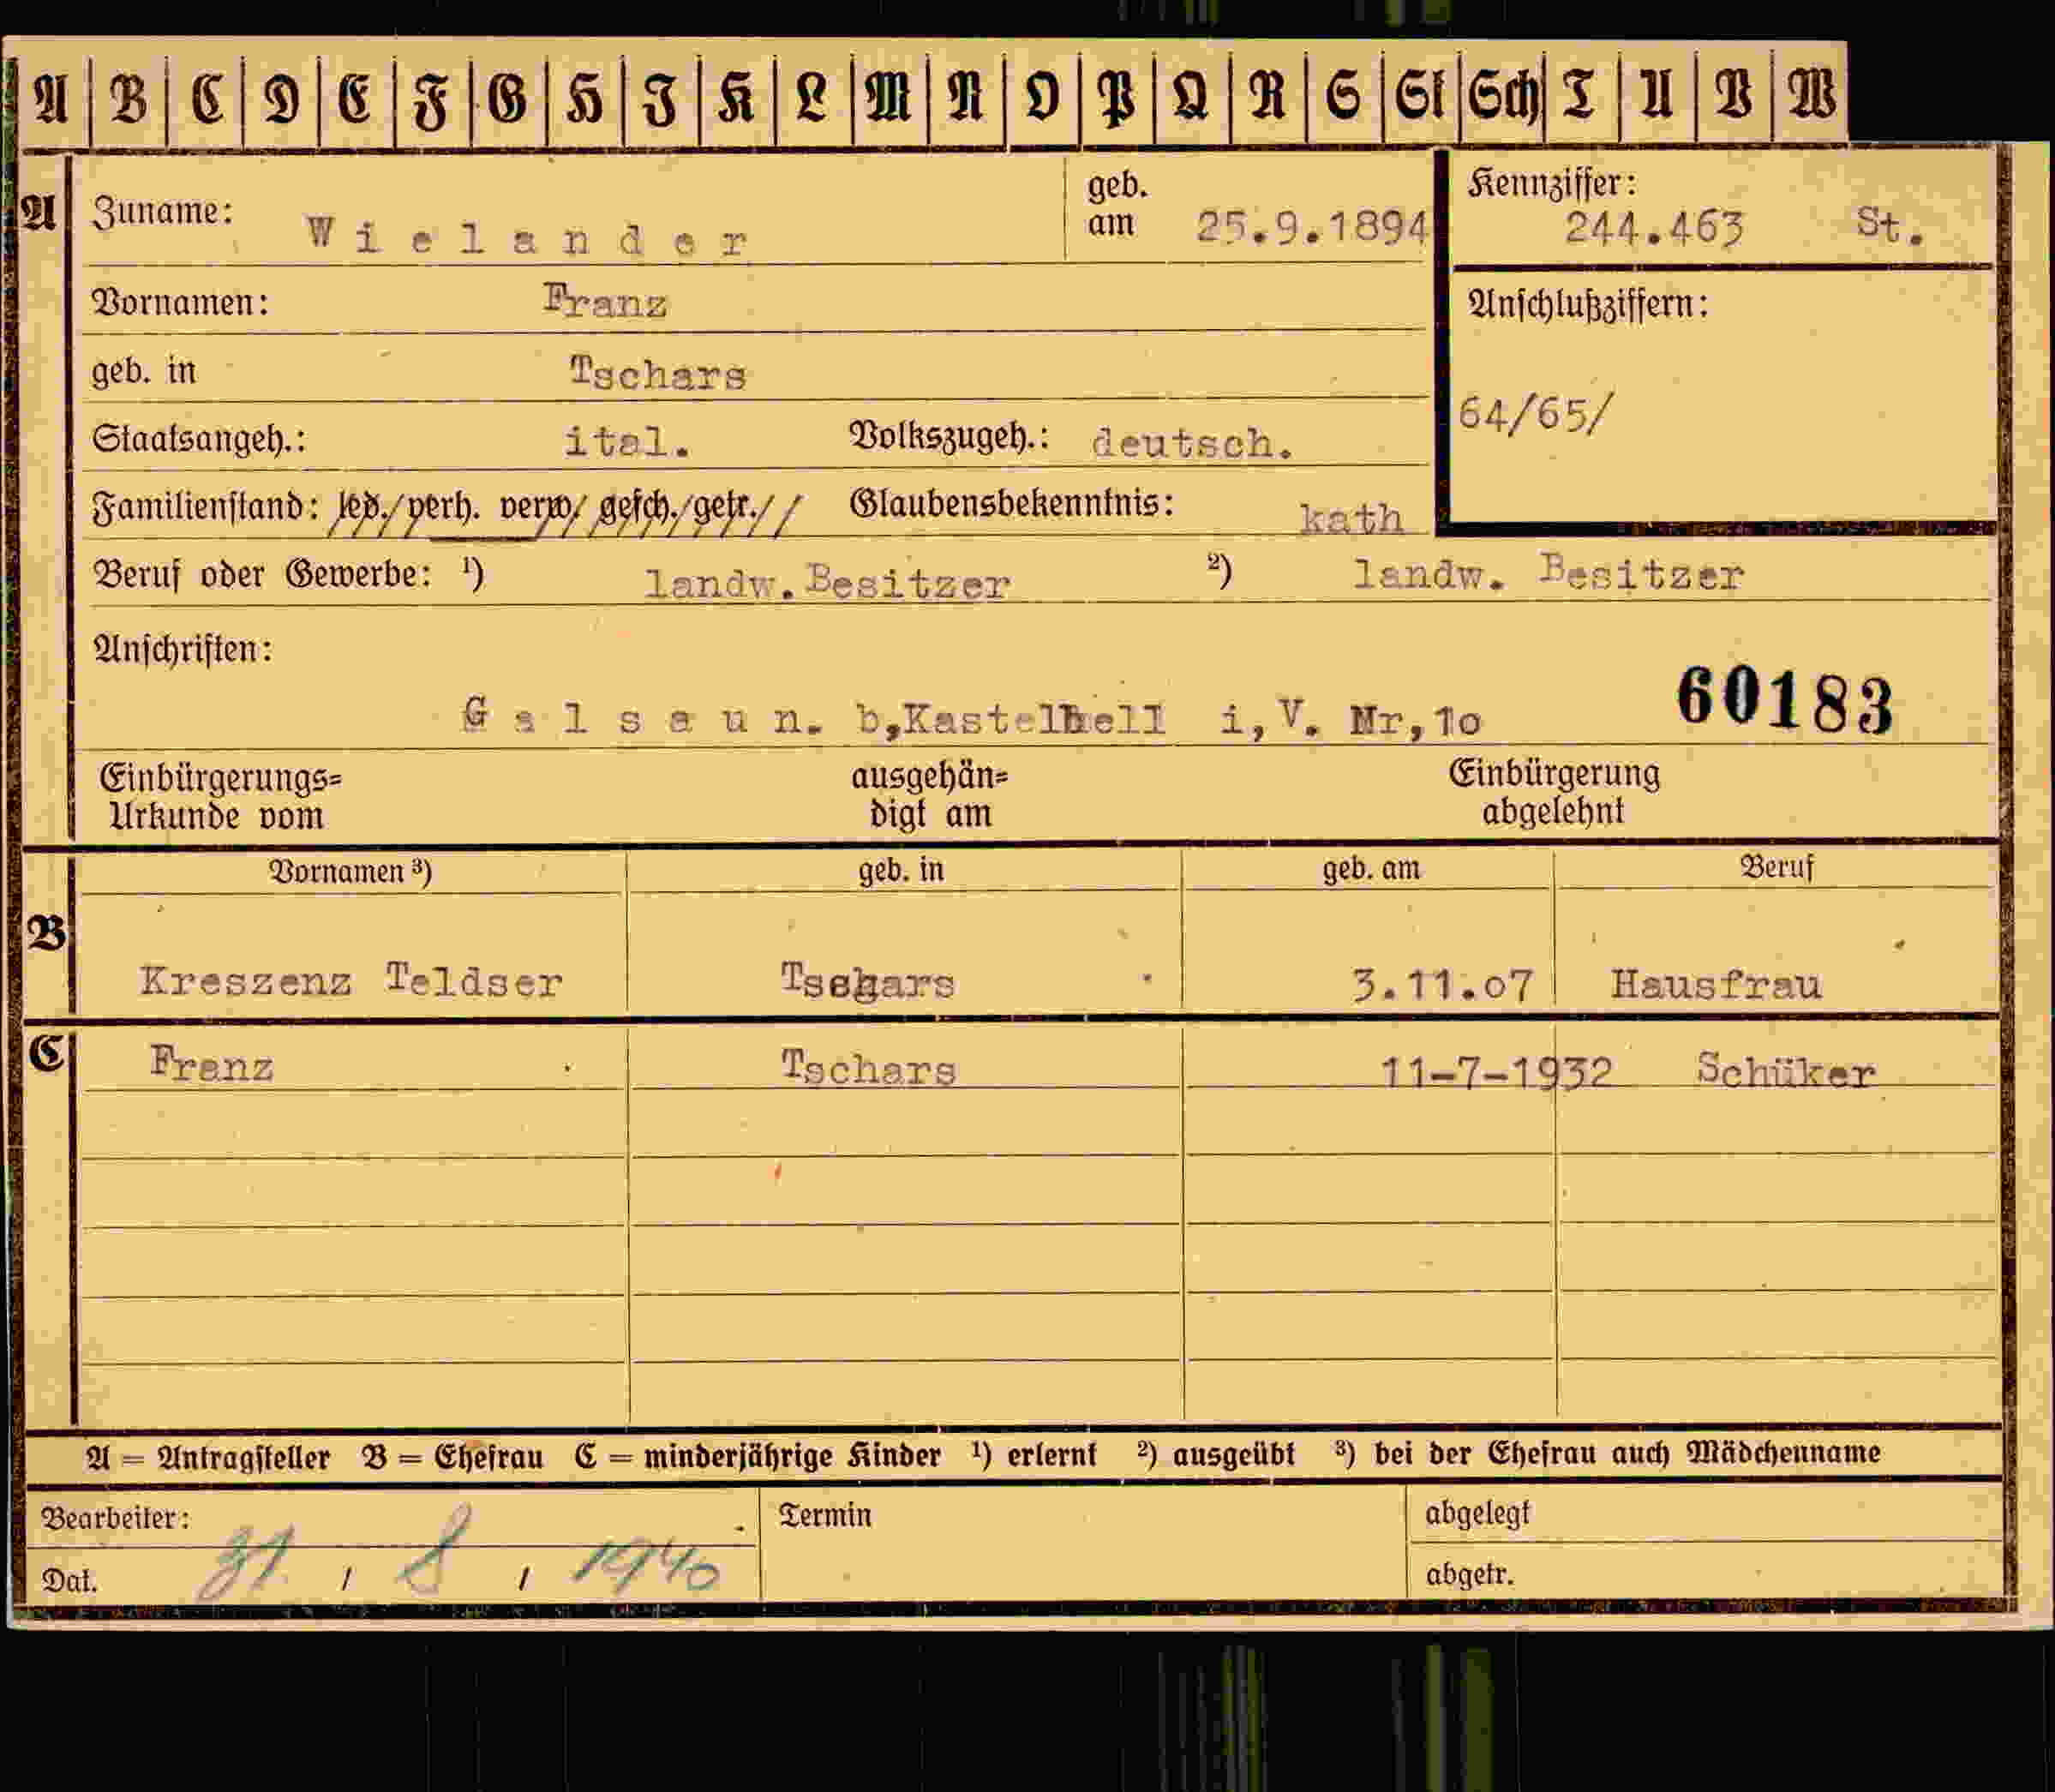 A B C D E F G H J K L M N O P Q R S St Sch T U V W
A Zuname: Wielander geb. am 25.9.1894 Kennziffer: 244.463 St.
Vornamen: Franz Anschlußziffern:
geb. in Tschars
64/65/
Staatsangeh.: ital. Volkszugeh.: deutsch.
Familienstand: led./verh. verw/ gesch./getr.// Glaubensbekenntnis: kath
Beruf oder Gewerbe: ¹) landw.Besitzer ²) landw. Besitzer
Anschriften:
Galsaun. b,Kastelbell i,V. Nr,1o 60183
Einbürgerungs= Urkunde vom ausgehän= digt am Einbürgerung abgelehnt
Vornamen ³) geb. in geb. am Beruf
B Kreszenz Teldser Tschars 3.11.o7 Hausfrau
C Franz Tschars 11-7-1932 Schüker
A = Antragsteller B = Ehefrau C = minderjährige Kinder ¹) erlernt ²) ausgeübt ³) bei der Ehefrau auch Mädchenname
Bearbeiter: Termin abgelegt
Dat. 31 / 8 / 1940 abgetr.